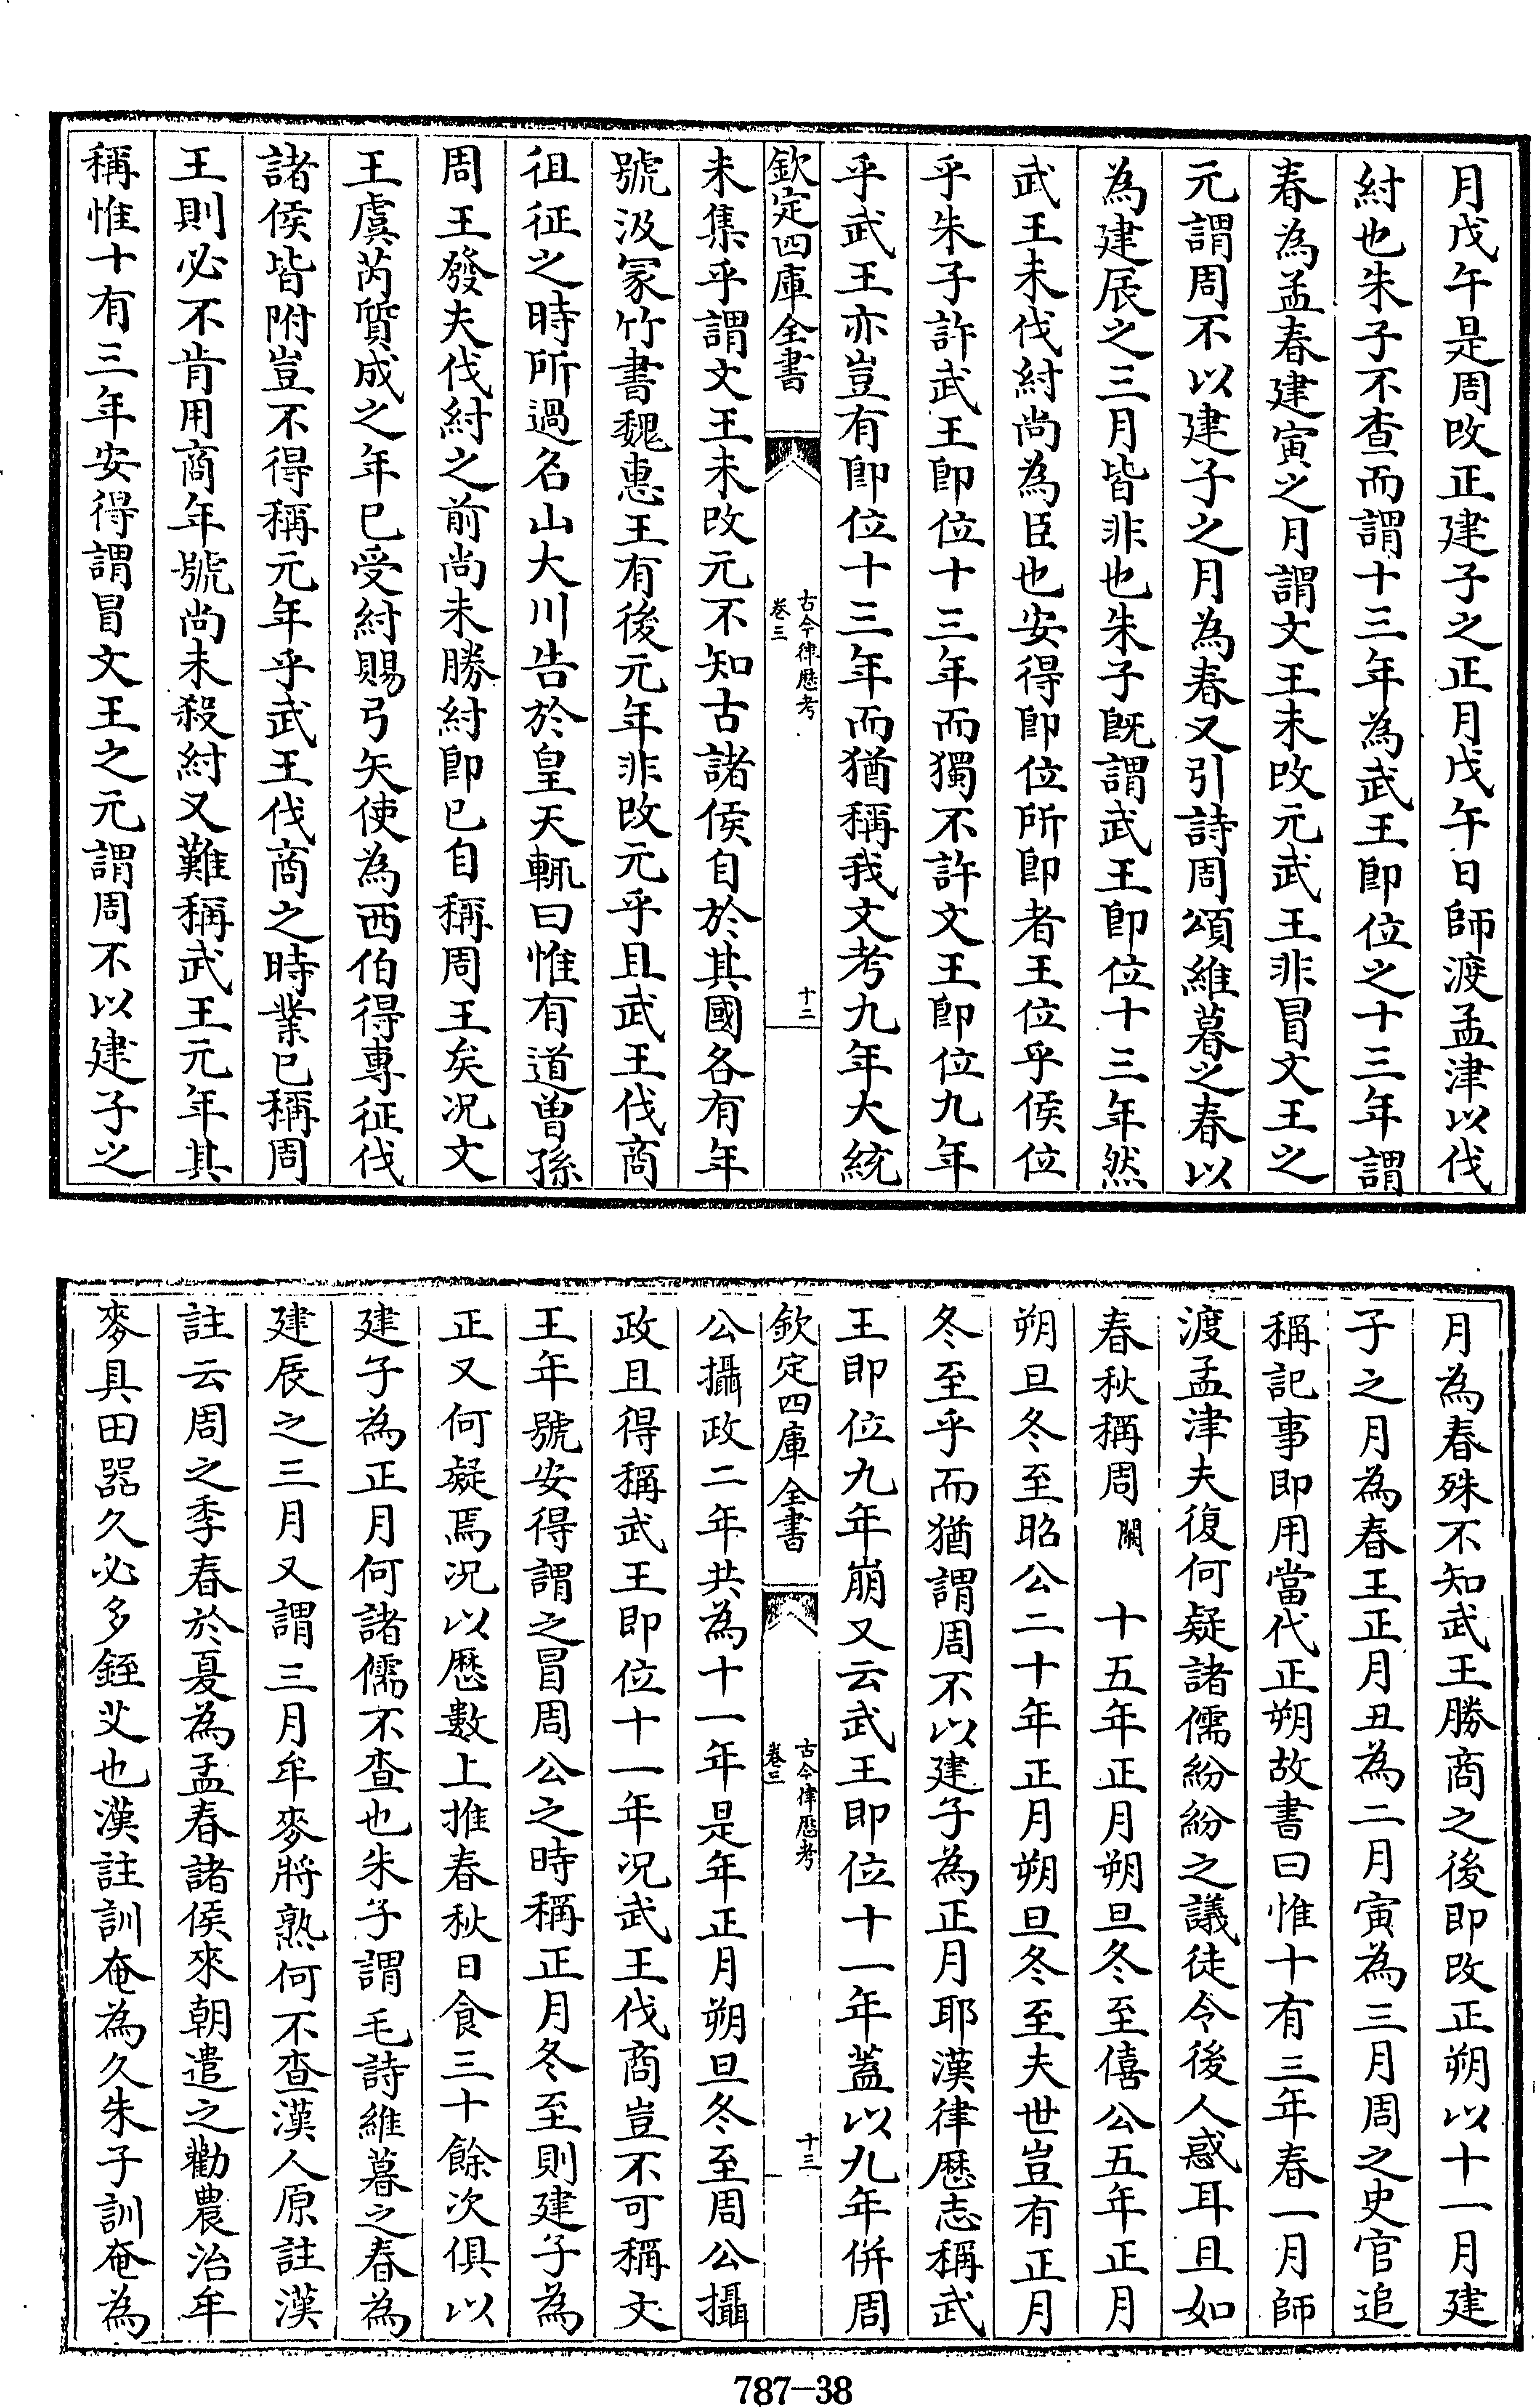 月戊午是周改正建子之正月戊午日師渡孟津以伐
紂也朱子不查而謂十三年為武王即位之十三年謂
春為孟春建寅之月謂文王未改元武王非冒文王之
元謂周不以建子之月為春又引詩周頌維暮之春以
為建辰之三月皆非也朱子既謂武王即位十三年然
武王未伐紂尚為臣也安得即位所即者王位乎侯位
乎朱子許武王即位十三年而獨不許文王即位九年
乎武王亦豈有即位十三年而猶稱我文考九年大統
欽定四庫全書
古今律厯考
卷三
十二
未集乎謂文王未改元不知古諸侯自於其國各有年
號汲冢竹書魏惠王有後元年非改元乎且武王伐商
徂征之時所過名山大川告於皇天輒曰惟有道曾孫
周王發夫伐紂之前尚未勝紂即已自稱周王矣况文
王虞芮質成之年已受紂賜弓矢使為西伯得專征伐
諸侯皆附豈不得稱元年乎武王伐商之時業已稱周
王則必不肯用商年號尚未殺紂又難稱武王元年其
稱惟十有三年安得謂冒文王之元謂周不以建子之
月為春殊不知武王勝商之後即改正朔以十一月建
子之月為春王正月丑為二月寅為三月周之史官追
稱記事即用當代正朔故書曰惟十有三年春一月師
渡孟津夫復何疑諸儒紛紛之議徒令後人惑耳且如
春秋稱周 闕 十五年正月朔旦冬至僖公五年正月
朔旦冬至昭公二十年正月朔旦冬至夫世豈有正月
冬至乎而猶謂周不以建子為正月耶漢律厯志稱武
王即位九年崩又云武王即位十一年蓋以九年併周
欽定四庫全書
古今律厯考
卷三
十三
公攝政二年共為十一年是年正月朔旦冬至周公攝
政且得稱武王即位十一年况武王伐商豈不可稱文
王年號安得謂之冒周公之時稱正月冬至則建子為
正又何疑焉况以厯數上推春秋日食三十餘次俱以
建子為正月何諸儒不查也朱子謂毛詩維暮之春為
建辰之三月又謂三月牟麥將熟何不查漢人原註漢
註云周之季春於夏為孟春諸侯來朝遣之勸農治牟
麥具田器久必多銍艾也漢註訓奄為久朱子訓奄為
787—38